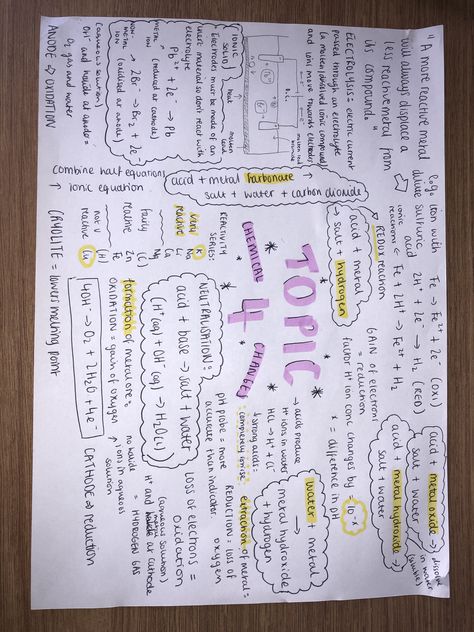 "A more reactive metal
will always displace a
less reactive metal from
its compound"
ELECTROLYSIS = electric current
passed through an electrolyte
(a molten/dissolved ionic compound)
and ions move towards electrodes
D.C.
IONIC
SOLID
heat
molten
Electrodes must be made of an
inert material so don't react with
electrolyte
Pb²⁺ + 2e⁻ → Pb
metal ion (reduced at cathode)
2Br⁻ → Br₂ + 2e⁻
non-metal ion (oxidised at anode)
(aqueous solution)
OH⁻ and halide at anode =
O₂ gas and water
ANODE ⇒ OXIDATION
e.g. iron with
dilute sulfuric
acid
Fe → Fe²⁺ + 2e⁻ (OXI)
2H⁺ + 2e⁻ → H₂ (RED)
ionic
reactions
Fe + 2H⁺ → Fe²⁺ + H₂
REDOX reaction
acid + metal
→ salt + hydrogen
acid + metal carbonate
→ salt + water + carbon dioxide
Combine half equations
→ ionic equation
GAIN of electrons
= reduction
factor H⁺ ion conc changes by
10⁻ˣ
x = difference in pH
acid + metal oxide →
salt + water
acid + metal hydroxide →
salt + water
dissolve
in water
TOPIC
4
CHEMICAL CHANGES
REACTIVITY
SERIES:
very
reactive
K
Na
Li
Ca
Mg
fairly
reactive
(C)
Zn
Fe
not v
reactive
(H)
Cu
CRYOLITE = lowers melting point
NEUTRALISATION:
acid + base → salt + water
(H⁺(aq) + OH⁻(aq) → H₂O(l))
formation of metal ore:
OXIDATION = gain of oxygen
4OH⁻ → O₂ + 2H₂O + 4e⁻
→ acids produce
H⁺ ions in water
HCl → H⁺ + Cl⁻
↓ strong acids:
completely ionise
pH probe = more
accurate than indicator
water + metal
→
metal hydroxide
+ hydrogen
extraction of metal =
REDUCTION = loss of
oxygen
LOSS of electrons =
Oxidation
(aqueous solution)
H⁺ and metal at cathode
= HYDROGEN GAS
no halide
ions in aqueous
solution
CATHODE ⇒ reduction